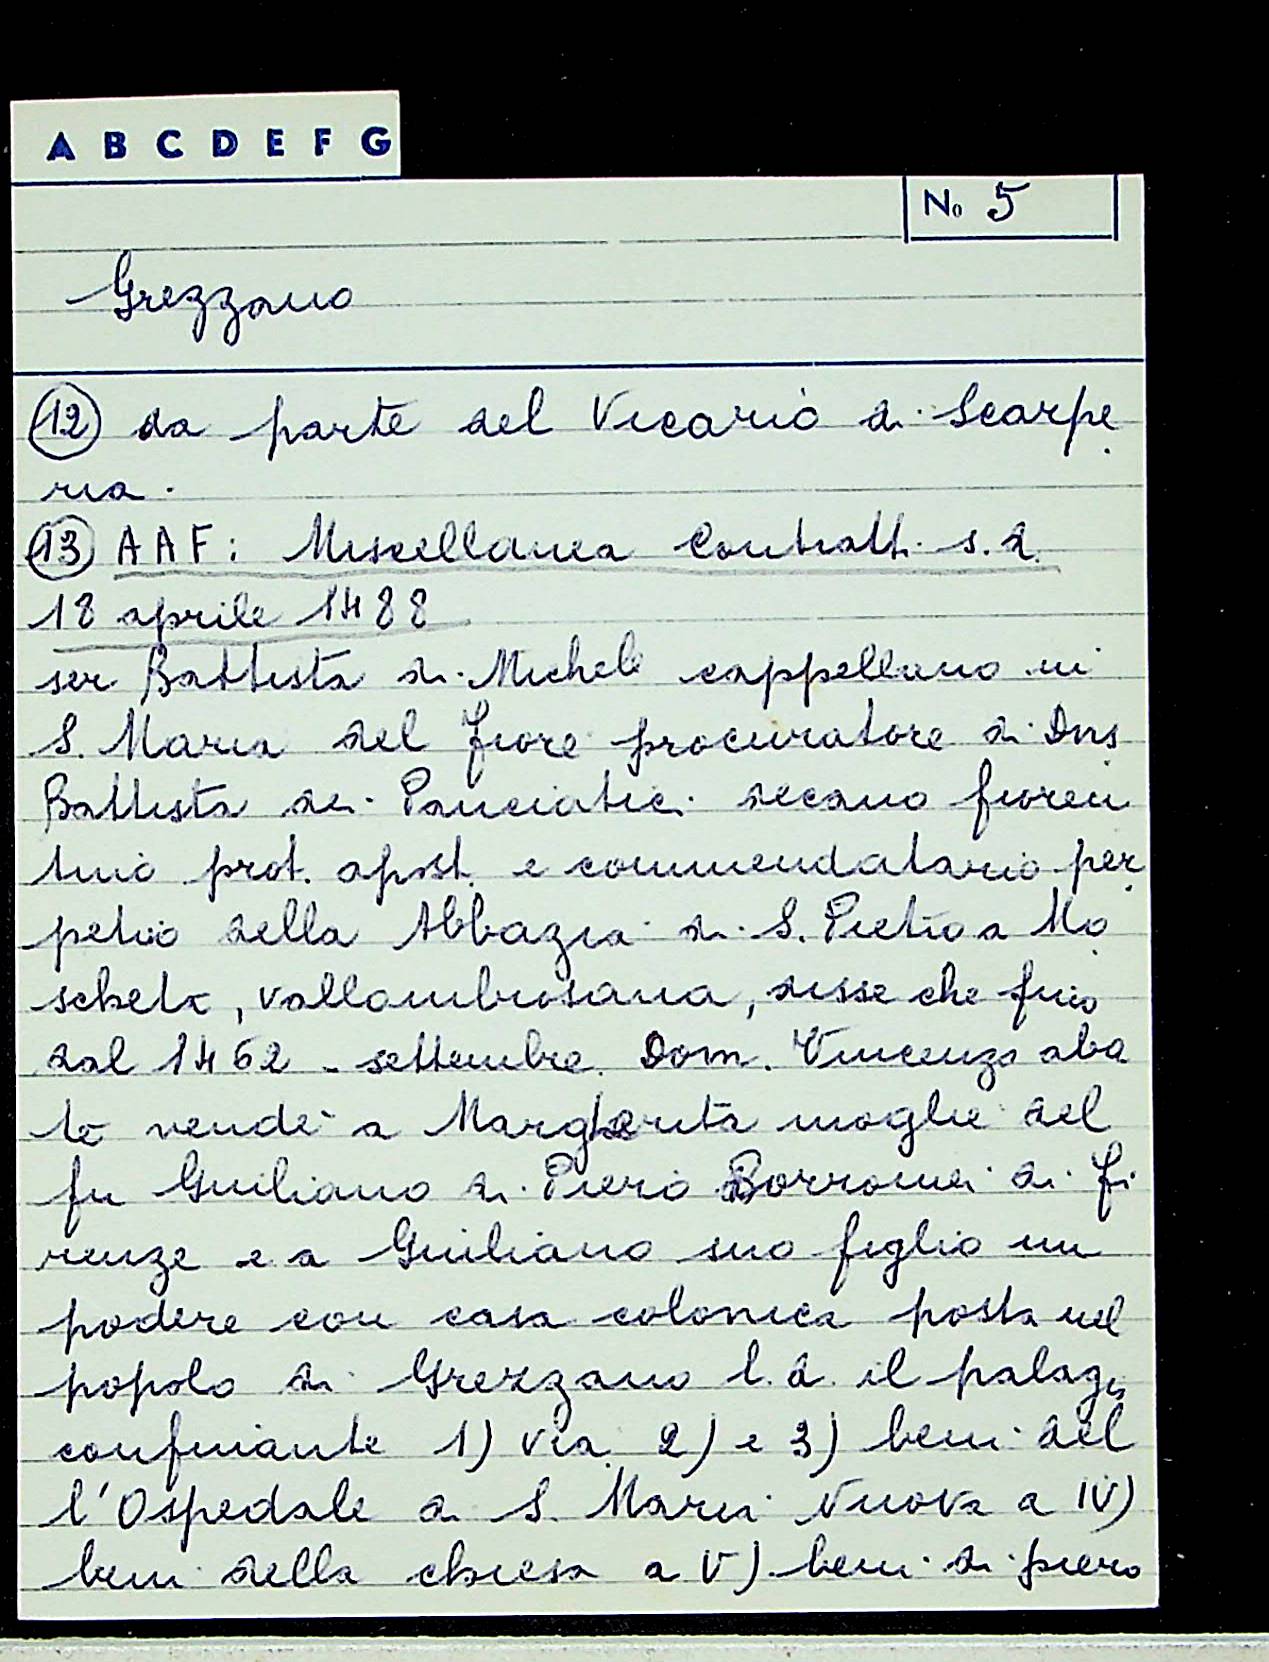 A B C D E F G
No 5
Grezzano
12 da parte del Vicario di Scarpe
ria.
13 AAF: Miscellanea Contratti s. d.
18 aprile 1488
ser Battista di Michele cappellano in
S. Maria del Fiore procuratore di Dns
Battista dei Panciatici decano fioren
tino prot. apost. e commendatario per
petuo della Abbazia di S. Pietro a Mo
scheta, vallombrosana, disse che fino
dal 1462 - settembre. Dom. Vincenzo aba
te vendé a Margherita moglie del
fu Giuliano di Piero Borromei di Fi
renze e a Giuliano suo figlio un
podere con casa colonica posta nel
popolo di Grezzano l. d. il palagio
confinante 1) via 2) e 3) beni del
l'Ospedale di S. Maria Nuova a IV)
beni della chiesa a V) beni di piero